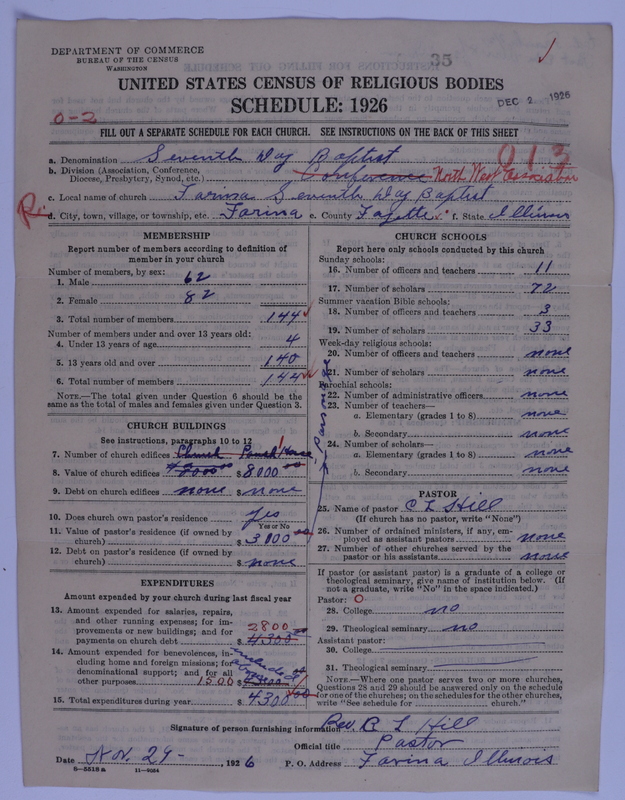 DEPARTMENT OF COMMERCE
BUREAU OF THE CENSUS
WASHINGTON
35
UNITED STATES CENSUS OF RELIGIOUS BODIES
SCHEDULE: 1926
DEC 2 1926
0-2
FILL OUT A SEPARATE SCHEDULE FOR EACH CHURCH. SEE INSTRUCTIONS ON THE BACK OF THIS SHEET
013
a. Denomination Seventh Day Baptist
b. Division (Association, Conference, Diocese, Presbytery, Synod, etc.) Conference North West Association
c. Local name of church Farina Seventh Day Baptist
d. City, town, village, or township, etc. Farina e. County Fayette f. State Illinois
MEMBERSHIP
Report number of members according to definition of member in your church
Number of members, by sex:
1. Male 62
2. Female 82
3. Total number of members 144
Number of members under and over 13 years old:
4. Under 13 years of age 4
5. 13 years old and over 140
6. Total number of members 144
NOTE.—The total given under Question 6 should be the same as the total of males and females given under Question 3.
CHURCH BUILDINGS
See instructions, paragraphs 10 to 12
7. Number of church edifices Church 1
8. Value of church edifices $ 8000 00
9. Debt on church edifices none $ none
10. Does church own pastor's residence yes
Yes or No
11. Value of pastor's residence (if owned by church) $ 3000
12. Debt on pastor's residence (if owned by church) $ none
EXPENDITURES
Amount expended by your church during last fiscal year
13. Amount expended for salaries, repairs, and other running expenses; for improvements or new buildings; and for payments on church debt 2800 $ 4300 00
14. Amount expended for benevolences, including home and foreign missions; for denominational support; and for all other purposes 1500 included above $
15. Total expenditures during year $ 4300 00
CHURCH SCHOOLS
Report here only schools conducted by this church
Sunday schools:
16. Number of officers and teachers 11
17. Number of scholars 72
Summer vacation Bible schools:
18. Number of officers and teachers 3
19. Number of scholars 33
Week-day religious schools:
20. Number of officers and teachers none
21. Number of scholars none
Parochial schools:
22. Number of administrative officers none
23. Number of teachers—
a. Elementary (grades 1 to 8) none
b. Secondary none
24. Number of scholars—
a. Elementary (grades 1 to 8) none
b. Secondary none
PASTOR
25. Name of pastor C L Hill
(If church has no pastor, write "None")
26. Number of ordained ministers, if any, employed as assistant pastors none
27. Number of other churches served by the pastor or his assistants none
If pastor (or assistant pastor) is a graduate of a college or theological seminary, give name of institution below. (If not a graduate, write "No" in the space indicated.)
Pastor: 0
28. College no
29. Theological seminary no
Assistant pastor:
30. College
31. Theological seminary
NOTE.—Where one pastor serves two or more churches, Questions 28 and 29 should be answered only on the schedule for one of the churches; on the schedules for the other churches, write "See schedule for church."
Signature of person furnishing information Rev. C L Hill
Official title Pastor
Date Nov. 29- , 1926 P. O. Address Farina Illinois
8-5518 a 11-9064